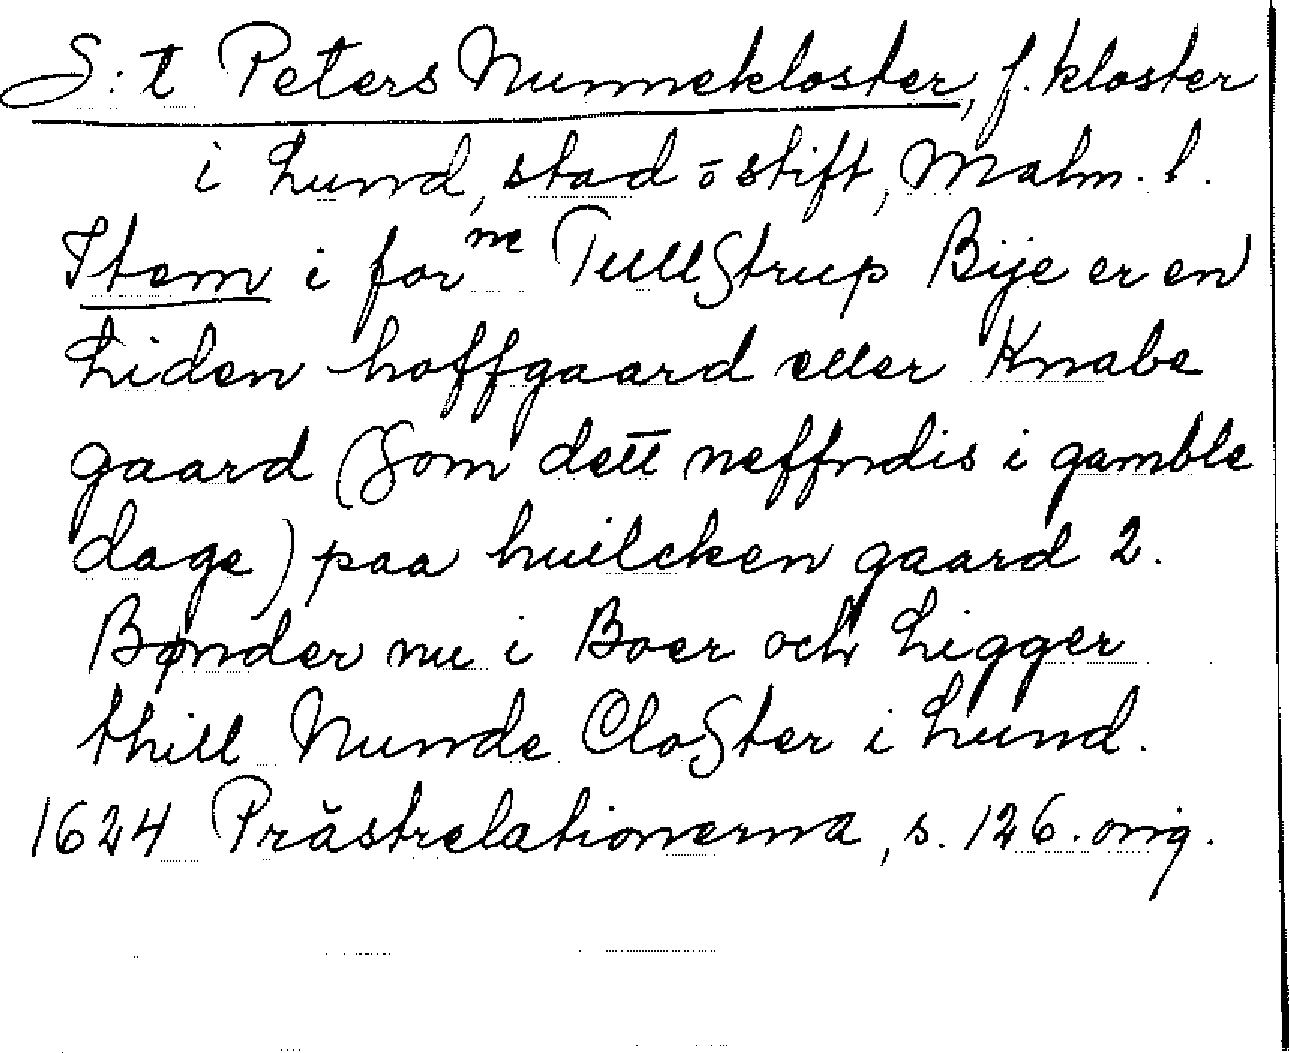 S:t Peters Nunnekloster, f. kloster
i Lund, stad o stift, Malm. l.
Item i forne Tullstrup Bije er en
Liden hoffgaard eller Knabe
gaard (som dett neffndis i gamble
dage) paa huilcken gaard 2.
Bønder nu i Boer och Ligger
thill Nunde Closter i Lund.
1624 Prästrelationerna, s. 126. orig.